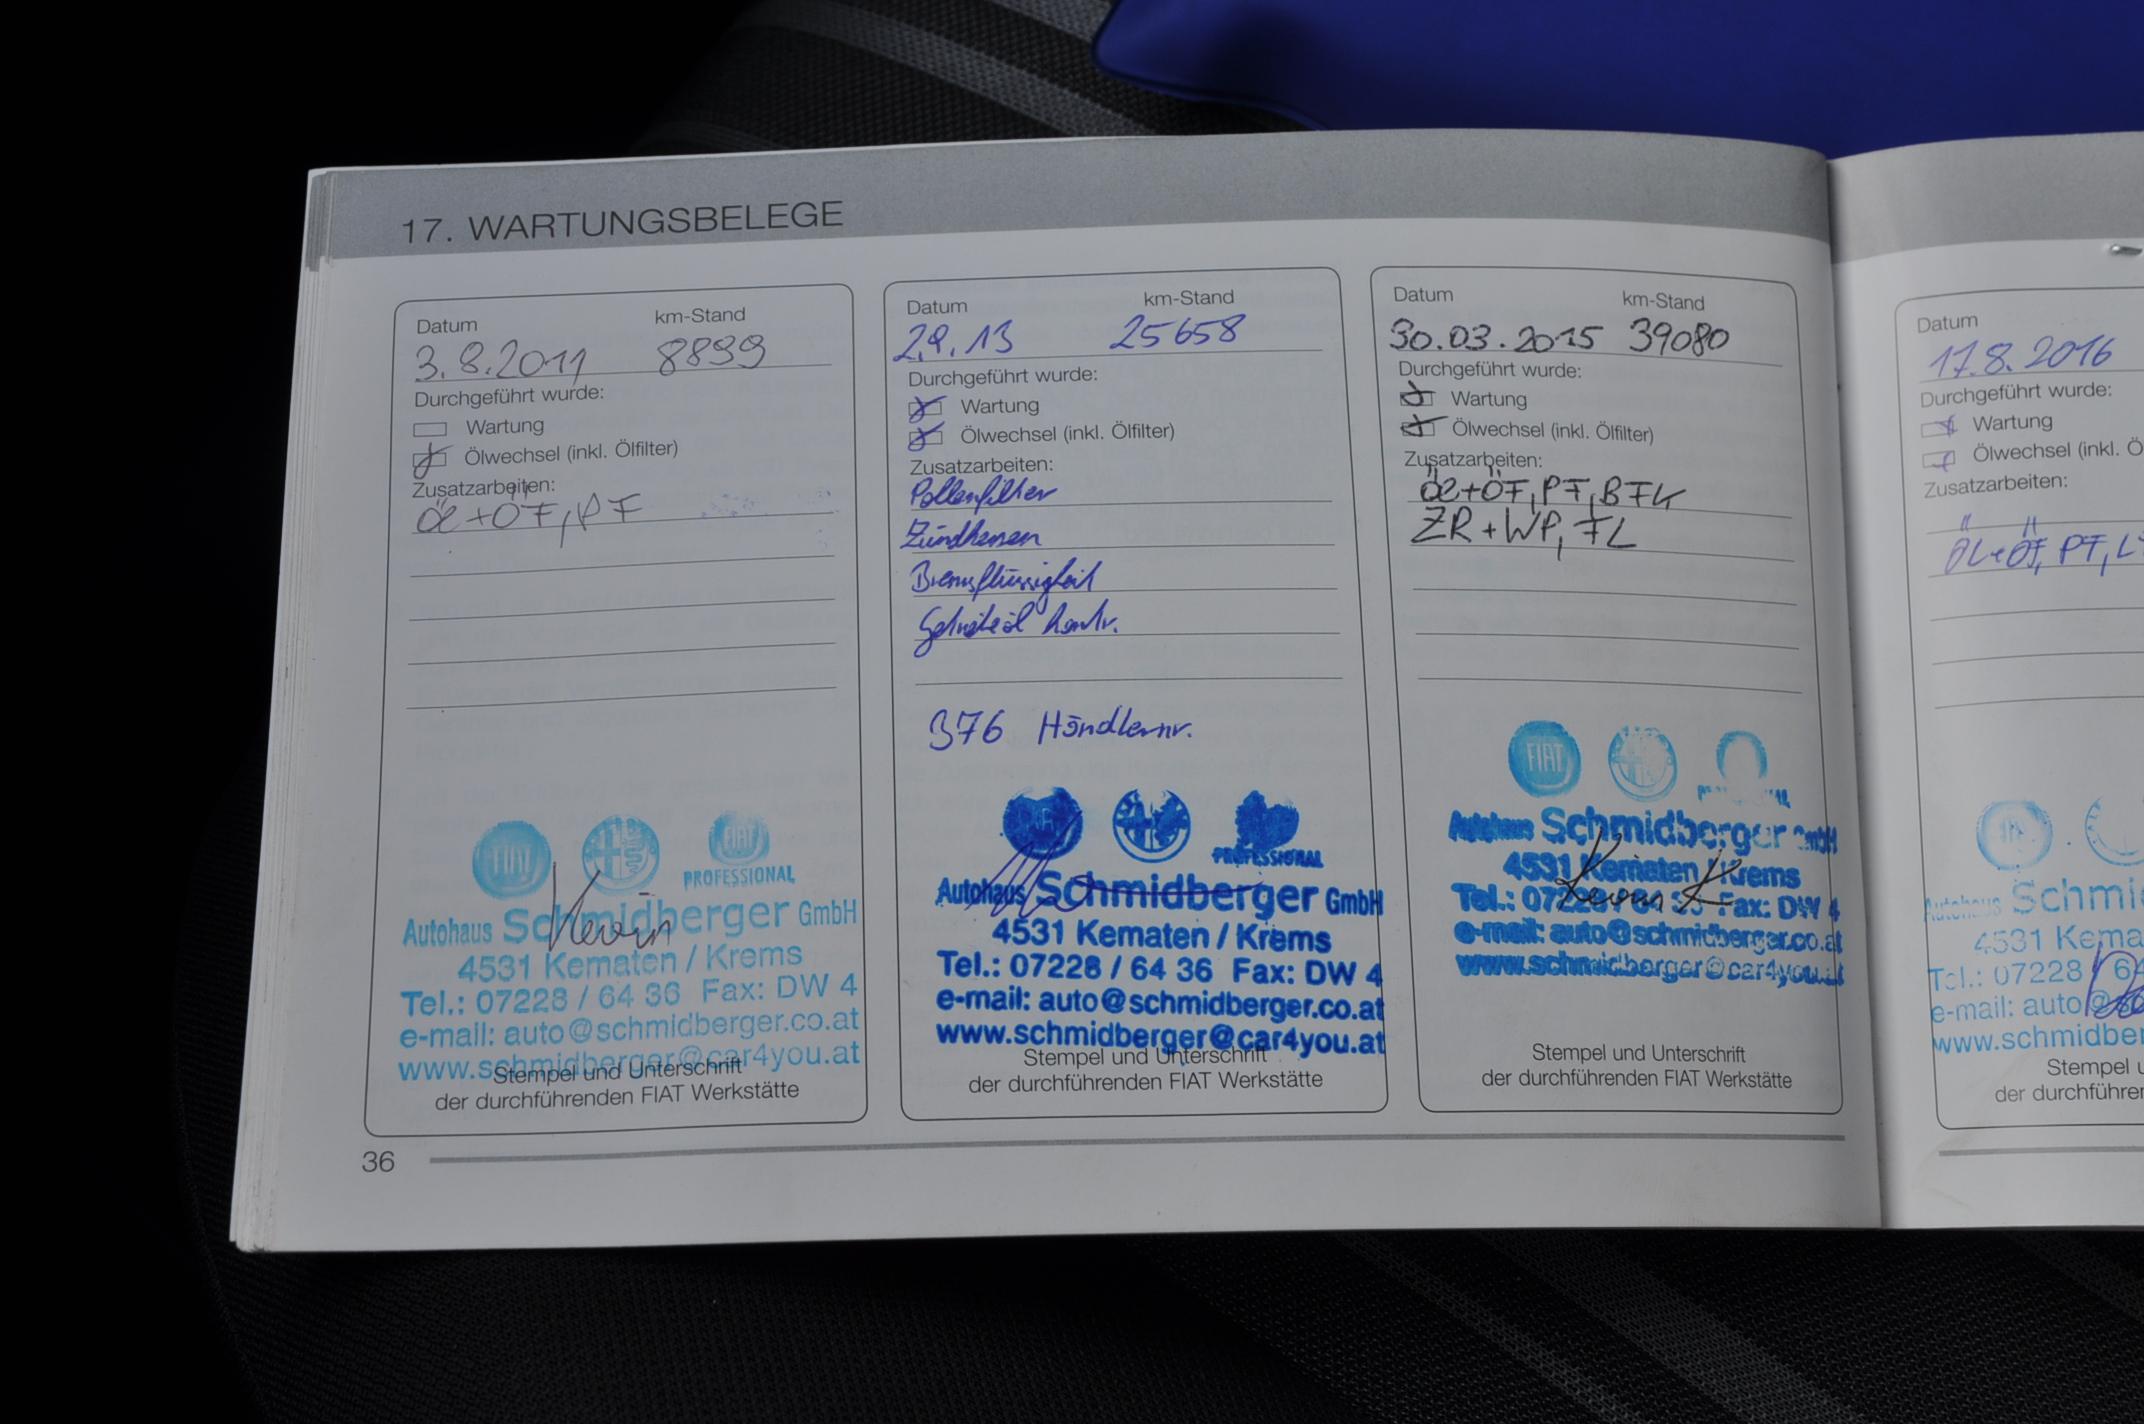 17. WARTUNGSBELEGE
Datum km-Stand
3.8.2011 8899
Durchgeführt wurde:
Wartung
Ölwechsel (inkl. Ölfilter)
Zusatzarbeiten:
Öl+ÖF, PF
FIAT
FIAT
PROFESSIONAL
Autohaus Schmidberger GmbH
4531 Kematen / Krems
Tel.: 07228 / 64 36 Fax: DW 4
e-mail: auto@schmidberger.co.at
www.schmidberger@car4you.at
Kevin
Stempel und Unterschrift
der durchführenden FIAT Werkstätte
Datum km-Stand
2.9.13 25658
Durchgeführt wurde:
Wartung
Ölwechsel (inkl. Ölfilter)
Zusatzarbeiten:
Pollenfilter
Zündkerzen
Bremsflüssigkeit
Getriebeöl kontr.
376 Händlernr.
PROFESSIONAL
Autohaus Schmidberger GmbH
4531 Kematen / Krems
Tel.: 07228 / 64 36 Fax: DW 4
e-mail: auto@schmidberger.co.at
www.schmidberger@car4you.at
Stempel und Unterschrift
der durchführenden FIAT Werkstätte
Datum km-Stand
30.03.2015 39080
Durchgeführt wurde:
Wartung
Ölwechsel (inkl. Ölfilter)
Zusatzarbeiten:
Öl+ÖF, PF, BFK
ZR+WP, FL
FIAT
Autohaus Schmidberger GmbH
4531 Kematen / Krems
Tel.: 07228 / 64 36 Fax: DW 4
e-mail: auto@schmidberger.co.at
www.schmidberger@car4you.at
Kevin K
Stempel und Unterschrift
der durchführenden FIAT Werkstätte
36
Datum
17.8.2016
Durchgeführt wurde:
Wartung
Ölwechsel (inkl. Ö
Zusatzarbeiten:
ÖL+ÖF, PF, L
Autohaus Schmi
4531 Kema
Tel.: 07228 / 64
e-mail: auto@
www.schmidber
Stempel u
der durchführen